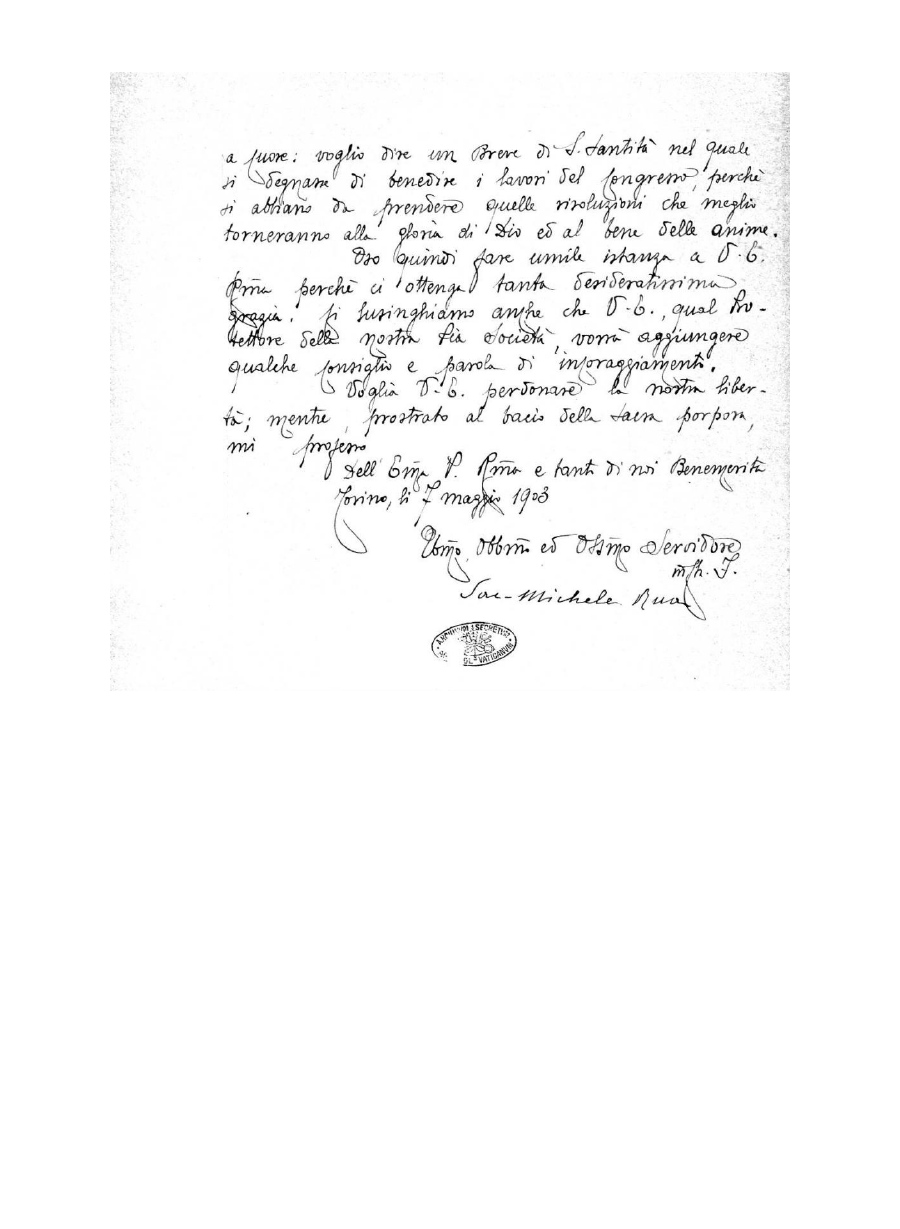 a cuore: voglio dire un Breve di S. Santità nel quale
si degnasse di benedire i lavori del Congresso, perchè
si abbiano da prendere quelle risoluzioni che meglio
torneranno alla gloria di Dio ed al bene delle anime.
Oso quindi fare umile istanza a V. E.
Rma perchè ci ottenga tanta desideratissima
grazia. Ci lusinghiamo anche che V. E., qual Pro-
tettore della nostra Pia Società, vorrà aggiungere
qualche consiglio e parola di incoraggiamento.
Voglia V. E. perdonare la nostra liber-
tà; mentre, prostrato al bacio della Sacra porpora,
mi professo
Dell' Emza V. Rma e tanto di noi Benemerita
Torino, li 7 maggio 1903
Obbmo ed Servidore
Sac. Michele Rua